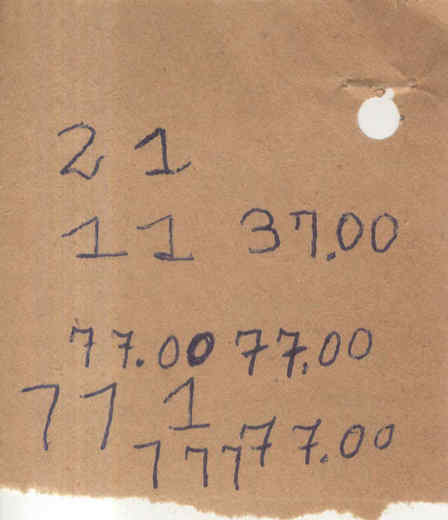 21
11 37.00
77.00 77.00
77 1
777 77.00